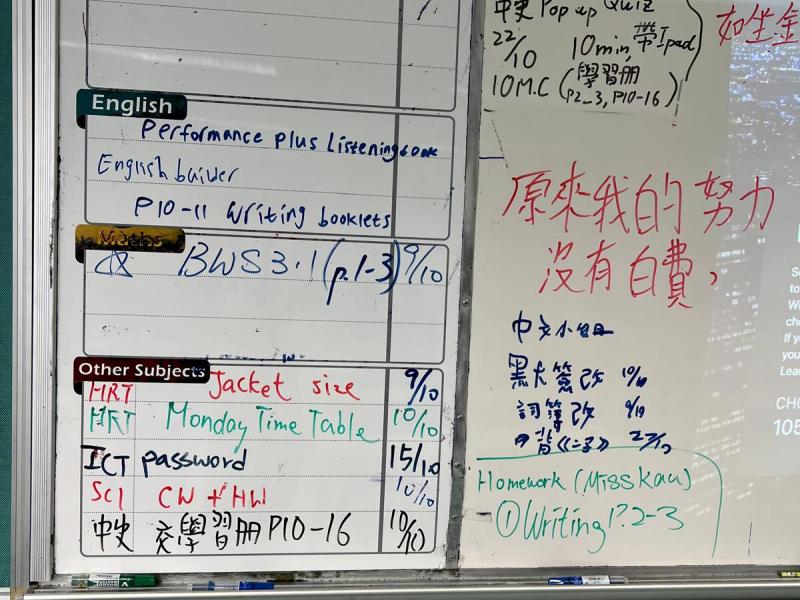 English
Performance Plus Listening book
English builder
P10-11 Writing booklets
Maths
BWS 3.1 (p.1-3) 9/10
Other Subjects
HRT Jacket size 9/10
HRT Monday Time Table 10/10
ICT password 15/10
SCI CW + HW 10/10
中史 交學習冊 P10-16 10/10
中史 Pop up Quiz
22/10 10min, 帶Ipad
10 M.C (學習冊
P2_3, P10-16)
如坐金
原來我的努力
沒有白費,
中文小組
簽改 10/10
詞簿改 9/10
背《二子》 22/10
Homework (Miss Kau)
① Writing P.2-3
105